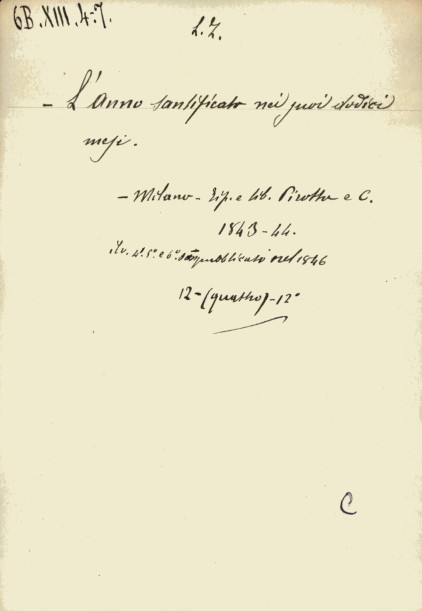 6B.XIII.4.7.
L.Z.
- L'Anno santificato nei suoi dodici
mesi.
- Milano - Tip. e lib. Pirotta e C.
1843-44.
4°. 5° e 6° pubblicati nel 1846
12 - (quattro) - 12°
C